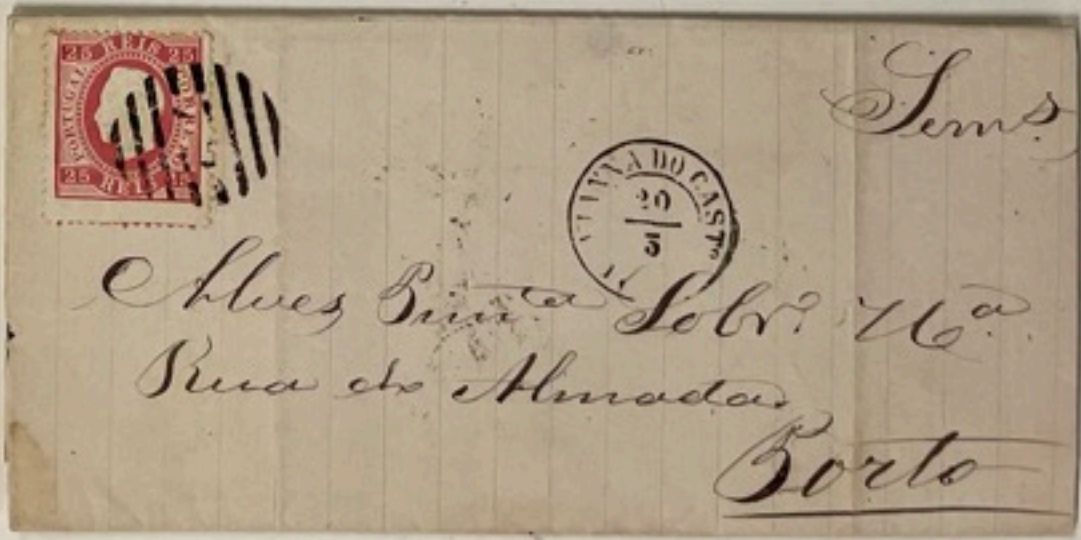 25 REIS 25
PORTUGAL
CORREIO
25 REIS 25
Sem.s
VIANNA DO CAST.º
20
5
Alves Pim.ta Sobr.º & C.ª
Rua do Almada
Porto